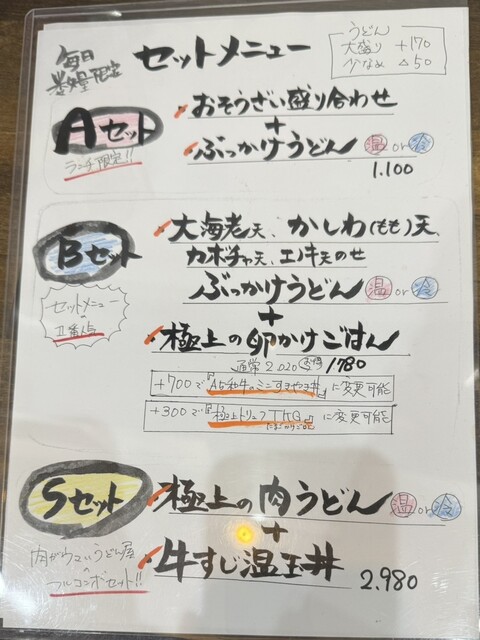 毎日
数量限定
セットメニュー
うどん
大盛り +170
少なめ △50
Aセット
ランチ限定!!
おそうざい盛り合わせ
+
ぶっかけうどん 温or冷
1.100
Bセット
セットメニュー
一番人気
大海老天、かしわ(もも)天、
カボチャ天、エノキ天のせ
ぶっかけうどん 温or冷
+
極上の卵かけごはん
通常2020 お得 1780
+700で『A5和牛のミニすきやき丼』に変更可能
+300で『極上トリュフTKG』に変更可能
たまごかけご飯
Sセット
肉がウマいうどん屋
の
フルコンボセット!!
極上の肉うどん 温or冷
+
牛すじ温玉丼 2.980